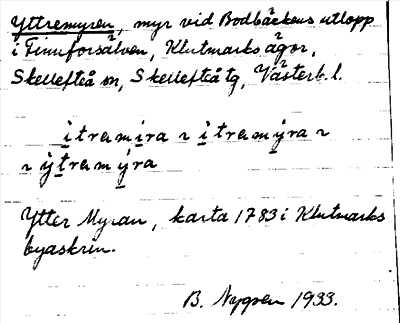 Yttremyren, myr vid Bodbäckens utlopp
i Finnforsälven, Klutmarks ägor,
Skellefteå sn, Skellefteå tg, Västerb. l.
i̱trɐmi̱ra ɿ i̱trɐmy̱ra ɿ
ɿ y̱trɐmy̱ra
Ytter Myran, karta 1783 i Klutmarks
byaskrin.
B. Nygren 1933.